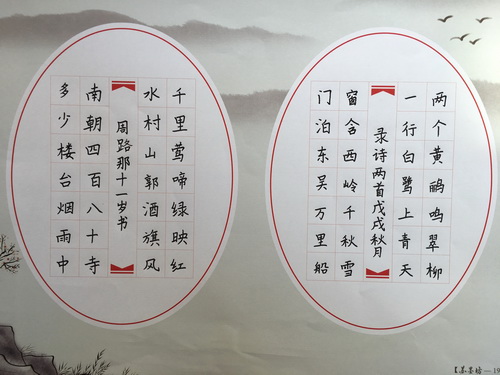 两个黄鹂鸣翠柳
一行白鹭上青天
录诗两首戊戌秋月
窗含西岭千秋雪
门泊东吴万里船
千里莺啼绿映红
水村山郭酒旗风
周路那十一岁书
南朝四百八十寺
多少楼台烟雨中